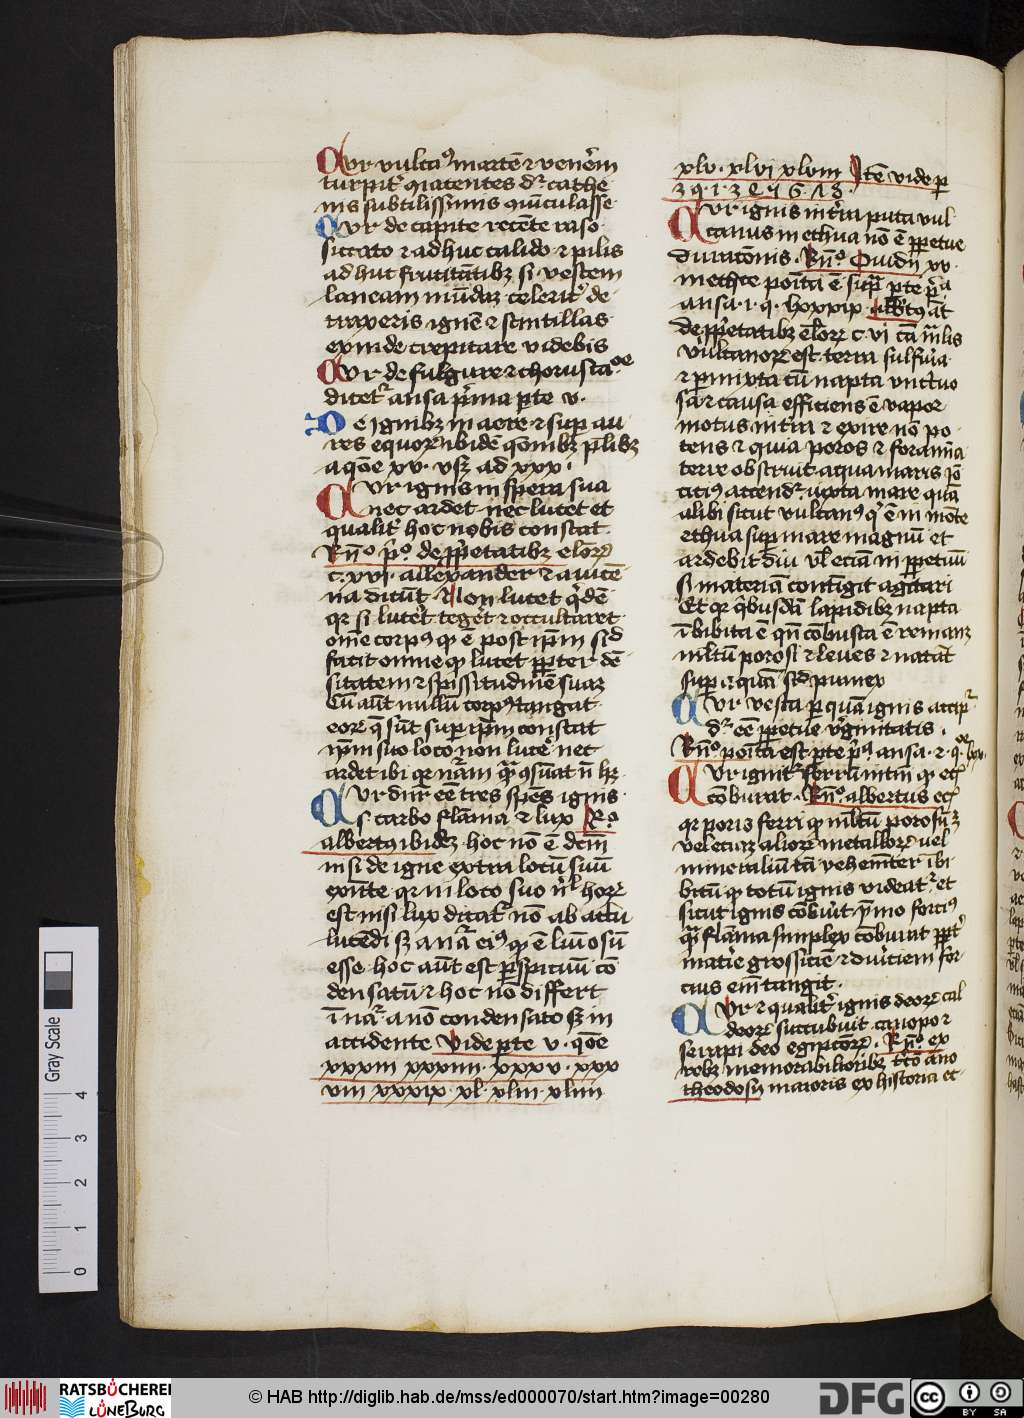 Cur vulcanꝰ martē ⁊ venerem
turpiter iacentes dr̄ cathe
nis subtilissimis vinculasse
Cur de capite recēte raso
siccato ⁊ adhuc calido ⁊ pilis
ad huc si vestem
laneam celerit᷑ de
traxeris ignē ⁊ scintillas
exinde crepitare videbis
Cur de fulgure ⁊ choruscacōe
dicet᷑ ansa p̄ma p̱te v.
De ignibꝫ in aere ⁊ sup̱ au
res equoꝝ ibidē q̄onibꝫ pl̄ibꝫ
a q̄one xv. vsqꝫ ad xxx.
Cur ignis in spera sua
nec ardet nec lucet et
qualit᷑ hoc nobis constat
Rn̄º pº. de pp̱etatibꝫ elorꝝ
c. xvi. allexander ⁊ auicē
na dicūt Non lucet q̇dē
qr si lucet᷑ teget᷑ ⁊ occultaret
om̄e corpꝰ qꝫ ē post ip̄m sic̄
facit omne qꝫ lucet pp̱ter dē
sitatem ⁊ spissitudinē suaꝫ
Cū aūt nullū corpꝰ tangat
eorꝝ q̄ sūt sup̱ ip̄m constat
ip̄m suo loco non luce᷑ nec
ardet ibi qr
Cur dn̄r eē tres spēs ignis
s. carbo flāma ⁊ lux Rº.
albertꝰ ibidē hoc nō ē dcm̄
nisi de igne extra locū suū
exn̄te qr in loco suo horꝝ
est nisi lux dicat᷑ nō ab actu
lucēdi sꝫ a nā eiꝰ qꝫ ē lumosū
esse hoc aūt est p̱spicuū cō
densatū ⁊ hoc nō differt
ī nā a nō condensato sꝫ in
accidente Vide p̱te v. q̄one
xxxiii xxxiiii. xxxv. xxx
viii xxxix. xl. xliii. xliiii
xlv. xlvi xlviii Itē vide p̱
Cur ignis intra puta vul
canus in ethna nō ē pp̱etue
duratōnis. Rn̄º. Ouidiꝰ xv.
meth̄e poīta ē sup̱ p̱te p̄a
ansa. i. q. lxxxix. albtꝰ āt
de pp̱etatibꝫ eloꝝ c. vi cā
vulcanoꝝ est terra sulfurea
⁊ p̱mixta cū napta vnctuo
sa ⁊ causa efficiens ē vapor
motus intra ⁊ exire nō po
tens ⁊ quia poros ⁊ foramīa
terre obstruit aqua maris iō
citiꝰ accendr̄ iuxta mare quā
alibi sicut vulcanꝰ q̇ ē in mōte
ethna sup̱ mare magnū et
ardebit diu vl̄ eciam in pp̱etuū
si materiā contīgit agītari
Et qr q̇busdā lapidibꝫ napta
ī bibita ē q̄n cōbusta ē remanꝫ
m̄ltū porosi ⁊ leues ⁊ natāt
sup̱ aquā sicut pumex
Cur vesta p̱ quā ignis accip̱r̄
dr̄ eē pp̱etue v̓ginitatis.
Rn̄º poīta est p̱te pª ansa. 2. q̄oe lxv.
Cur ignit᷑ ferrū intm̄ qꝫ eciā
cōburat. Rn̄º. albertus
qr poris ferri qꝫ m̄ltū porosū ꝫ
vel eciaꝫ alioꝝ metalloꝝ vel
mineraliū tā vehemēter ībi
bitū qꝫ totū ignis videat᷑ et
sicut ignis cōbu̓it ymo forciꝰ
q̄ flāma simplex cōburat pp̱t᷑
matie grossiciē ⁊ duriciem for
cius em̄ tangit.
Cur ⁊ qualit᷑ ignis deoꝝ cal
deoꝝ succubuit canopo ⁊
serapi deo egipcioꝝ. Rn̄º. ex
rebꝫ memorabilioribꝫ t̄cō ano
theodosij maioris ex historia ec̄
Gray Scale
0 1 2 3 4
RATSBÜCHEREI
LÜNEBURG
© HAB http://diglib.hab.de/mss/ed000070/start.htm?image=00280
DFG
cc BY SA